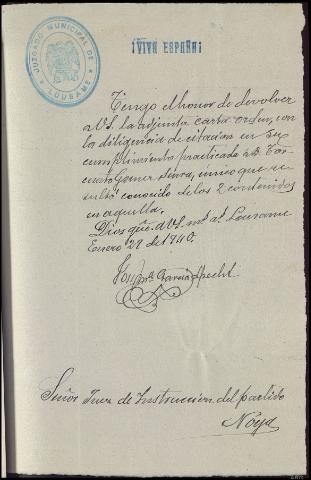 JUZGADO MUNICIPAL DE
LOUSAME
¡VIVA ESPAÑA!
Tengo el honor de devolver
a VS. la adjunta carta orden, con
la diligencia de citacion en su
cumplimiento practicada á D.
Gomez único que re
sultó conocido de los 2 contenidos
en aquella.
Dios gde. á VS. ms. as. Lousame
Enero 29 de 1940.
García
Señor Juez de Instruccion del partido
Noya